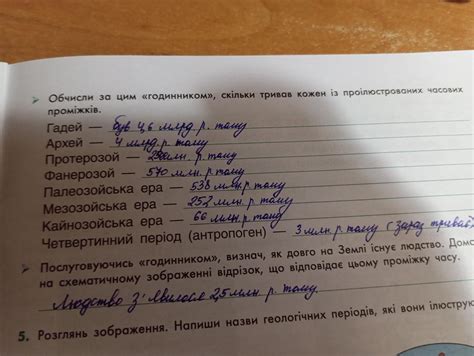 ➤ Обчисли за цим «годинником», скільки тривав кожен із проілюстрованих часових
проміжків.
Гадей — був 4,6 млрд. р. тому
Архей — 4 млрд. р. тому
Протерозой — млн. р. тому
Фанерозой — 570 млн. р. тому
Палеозойська ера — 538 млн. р. тому
Мезозойська ера — 252 млн. р. тому
Кайнозойська ера — 66 млн. р. тому
Четвертинний період (антропоген) — 3 млн. р. тому (зараз триває)
➤ Послуговуючись «годинником», визнач, як довго на Землі існує людство.
на схематичному зображенні відрізок, що відповідає цьому проміжку часу.
Людство з'явилося 2,5 млн. р. тому.
5. Розглянь зображення. Напиши назви геологічних періодів, які вони